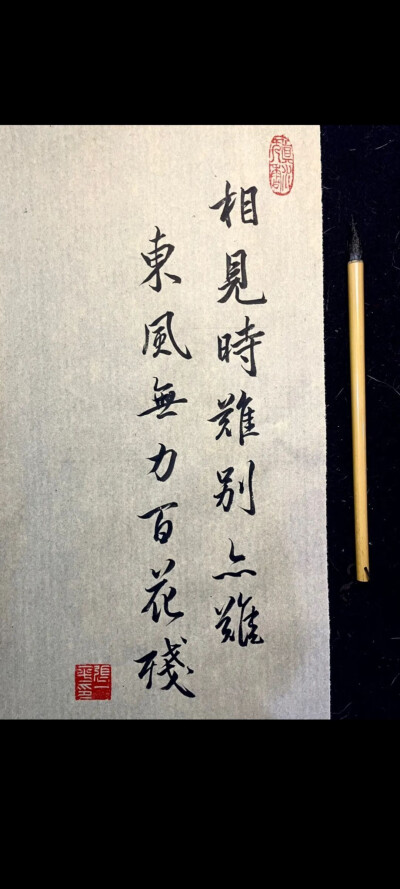 相見時難别亦難
東風無力百花殘